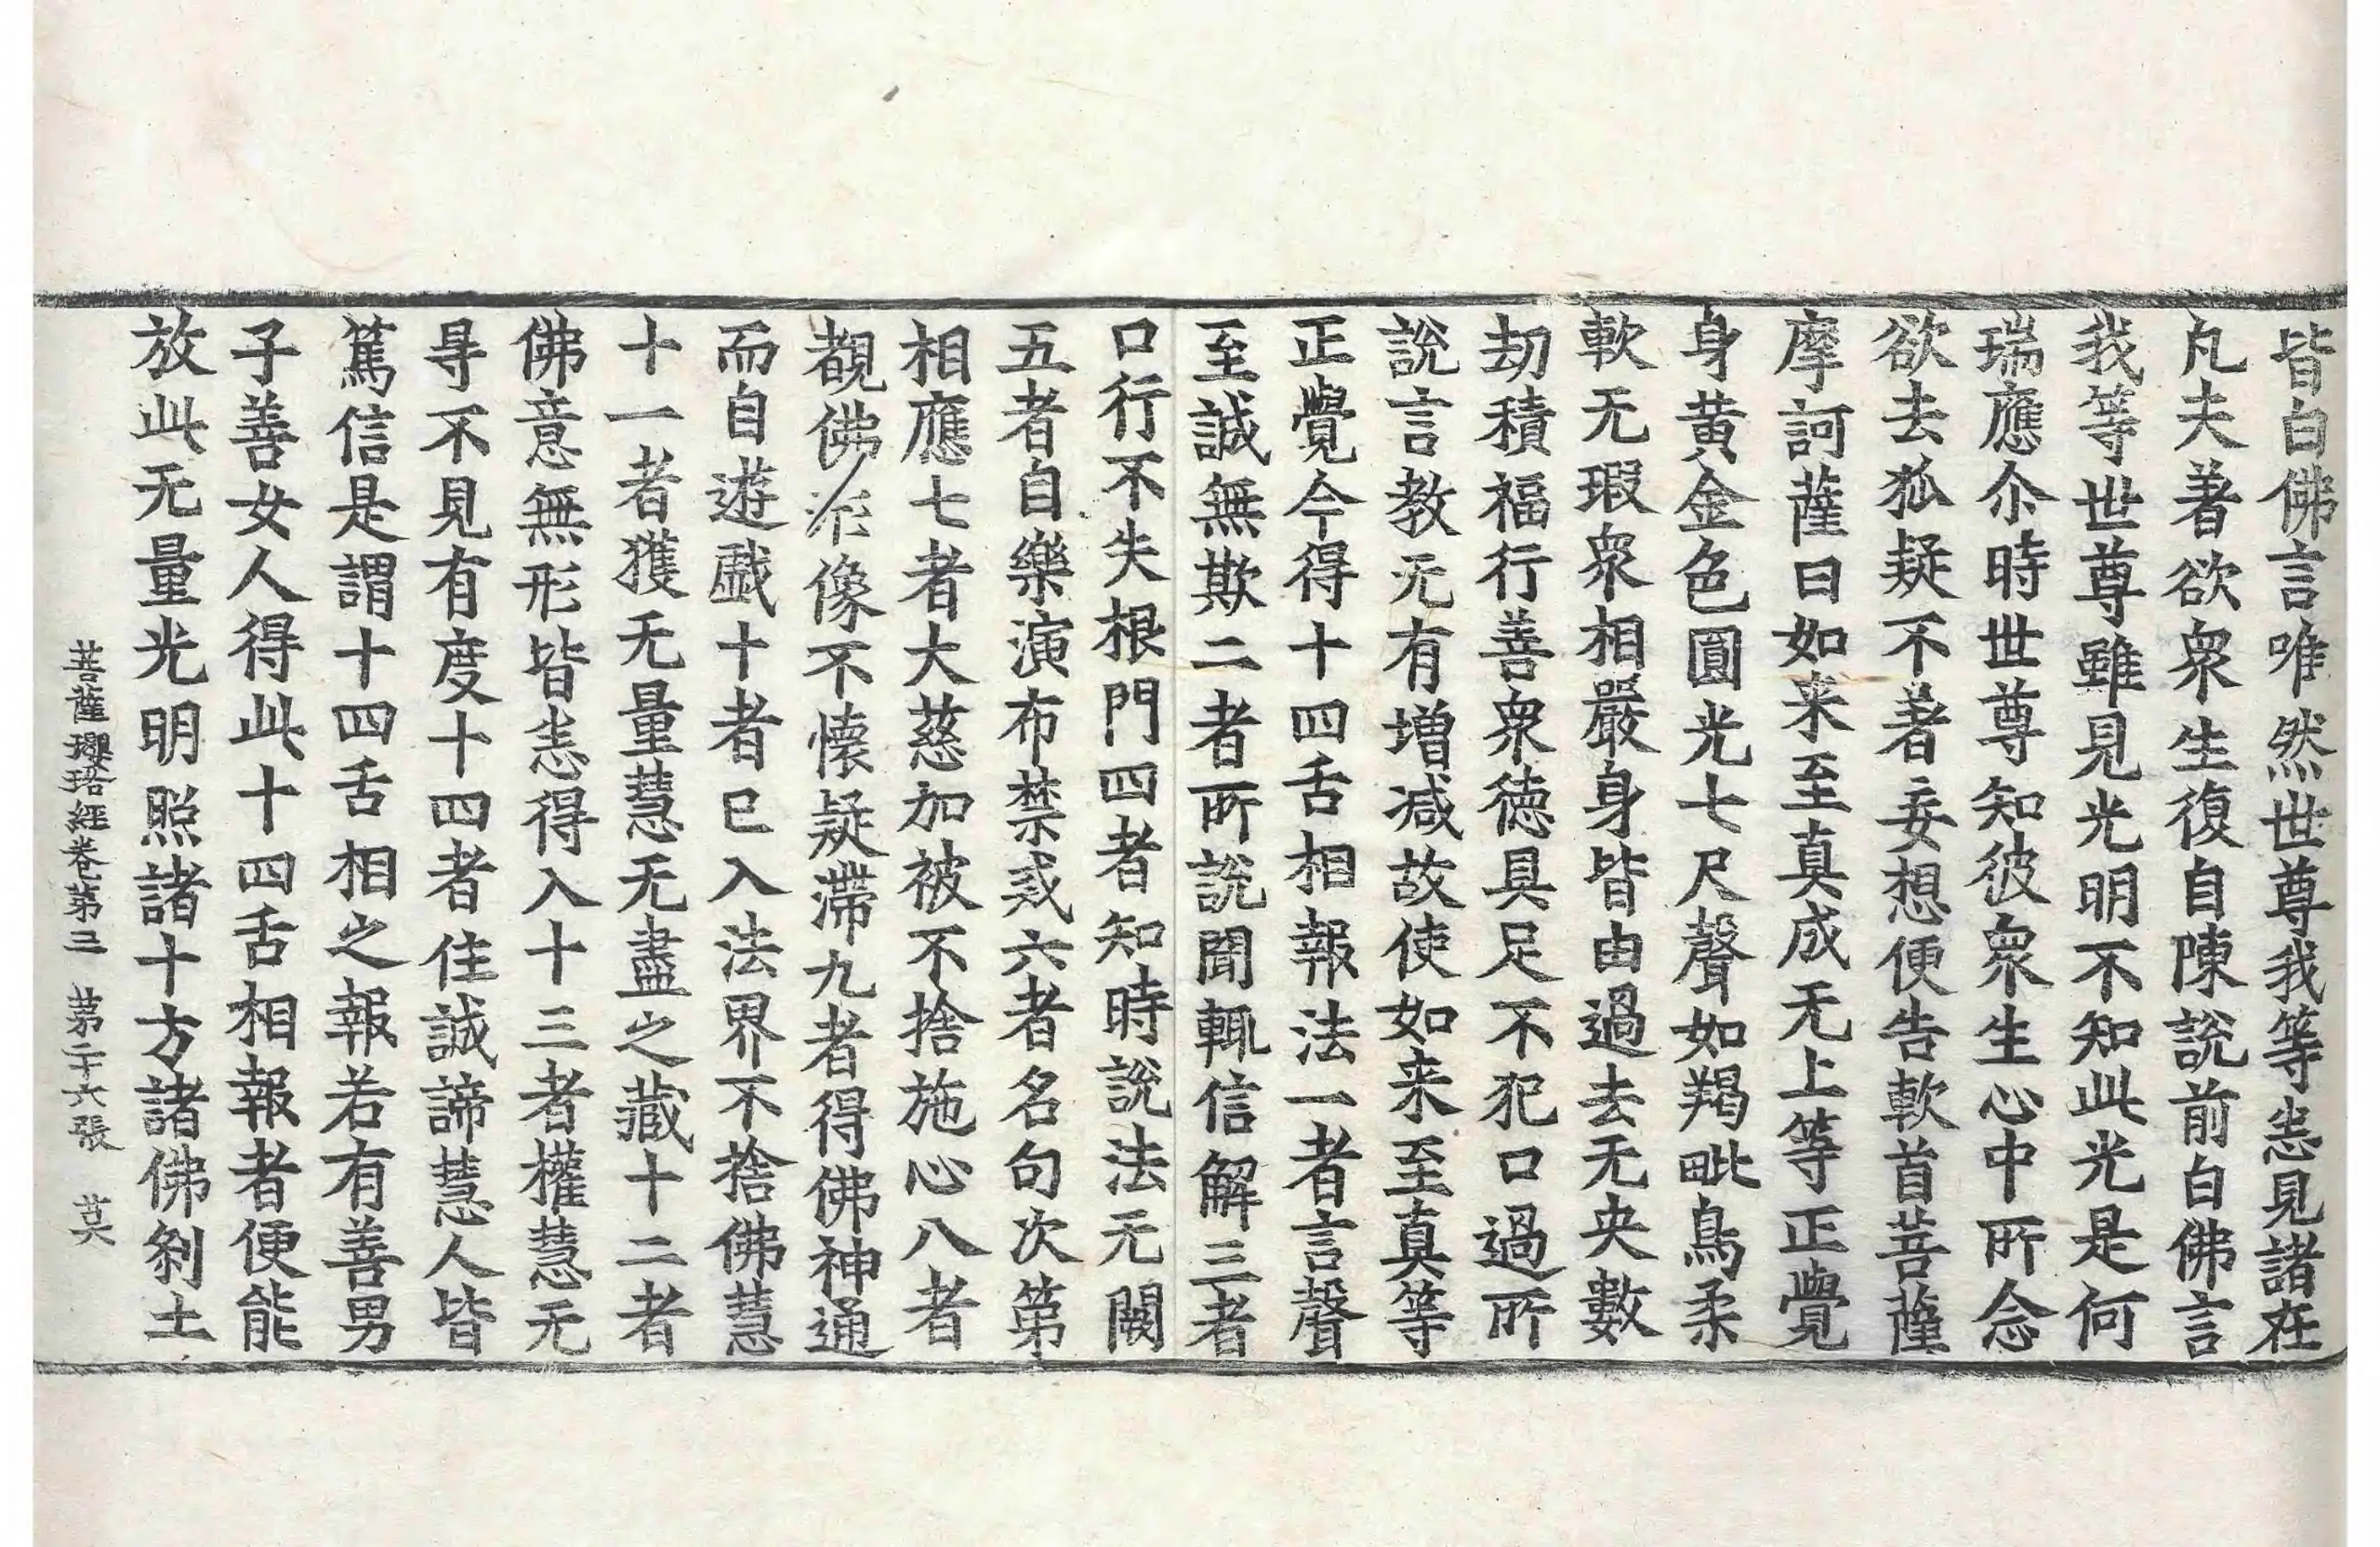 皆白佛言唯然世尊我等悉見諸在
凡夫著欲衆生復自陳說前白佛言
我等世尊雖見光明不知此光是何
瑞應尒時世尊知彼衆生心中所念
欲去狐疑不著妄想便告軟首菩薩
摩訶薩曰如来至真成无上等正覺
身黄金色圓光七尺聲如羯毗鳥柔
軟无瑕衆相嚴身皆由過去无央數
劫積福行善衆德具足不犯口過所
說言教无有增减故使如来至真等
正覺今得十四舌相報法一者言聲
至誠無欺二者所說聞輒信解三者
口行不失根門四者知時說法无闕
五者自樂演布禁戒六者名句次第
相應七者大慈加被不捨施心八者
覩佛形像不懷疑滯九者得佛神通
而自遊戲十者已入法界不捨佛慧
十一者獲无量慧无盡之藏十二者
佛意無形皆悉得入十三者權慧无
㝵不見有度十四者住誠諦慧人皆
篤信是謂十四舌相之報若有善男
子善女人得此十四舌相報者便能
放此无量光明照諸十方諸佛剎土
菩薩瓔珞經卷第三　第二十六張　莫